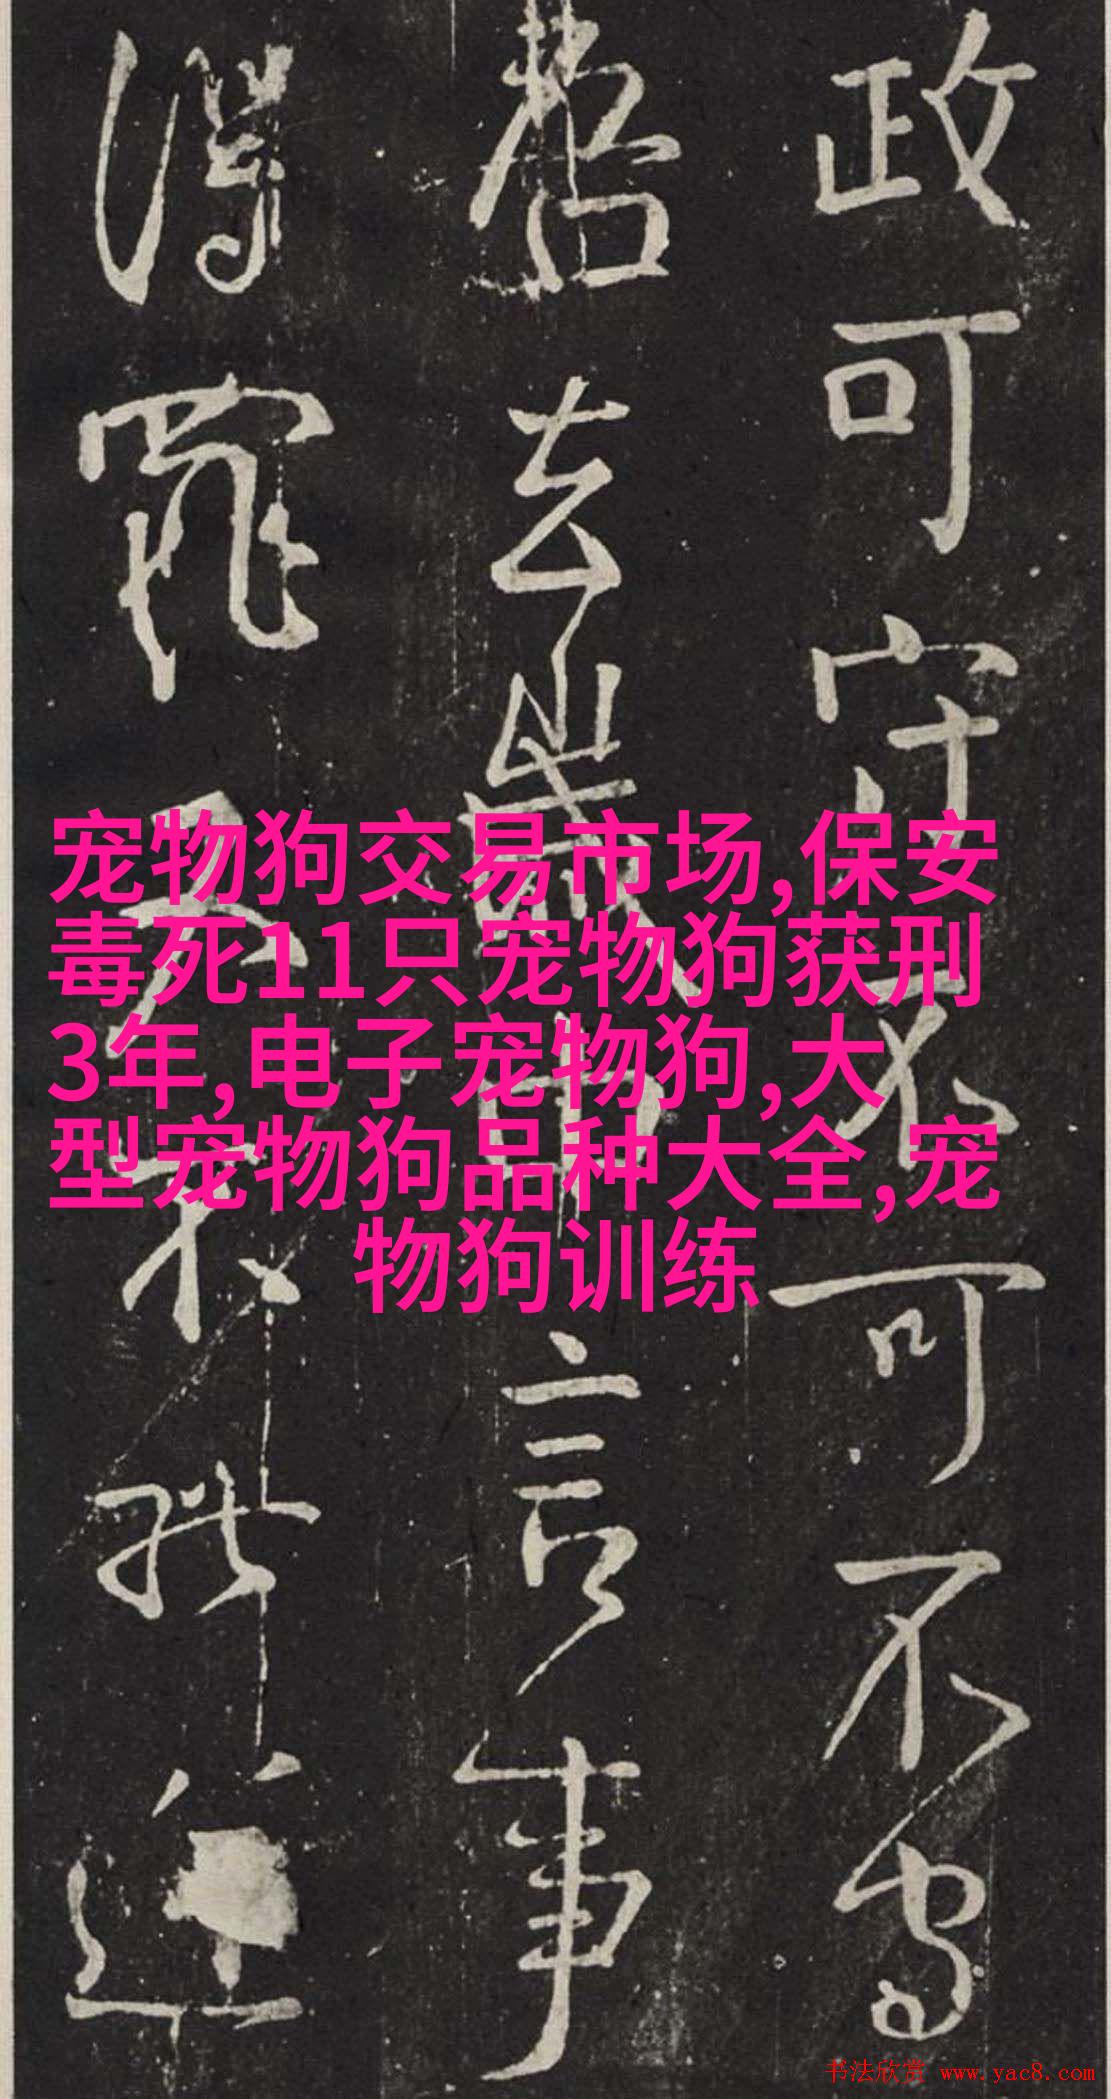 政可守不可不守
哲去歲中言事
得罪又不能逆
宠物狗交易市场,保安
毒死11只宠物狗获刑
3年,电子宠物狗,大
型宠物狗品种大全,宠
物狗训练
书法欣赏 www.yac8.com